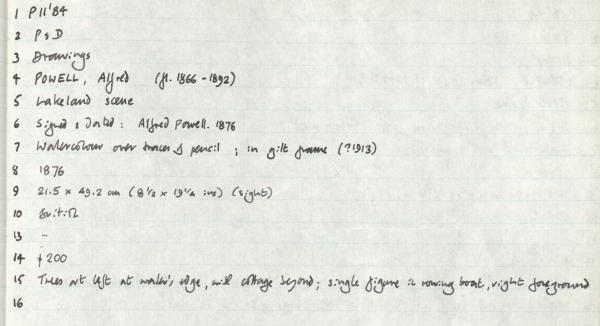 1 P11'84
2 P & D
3 Drawings
4 POWELL, Alfred (fl. 1866-1892)
5 Lakeland scene
6 Signed & Dated: Alfred Powell. 1876
7 Watercolour over traces of pencil; in gilt frame (?1913)
8 1876
9 21.5 x 49.2 cm (8 1/2 x 19 1/4 ins) (sight)
10 British
13 -
14 £200
15 Trees at left at water's edge, with cottage beyond; single figure in rowing boat, right foreground
16